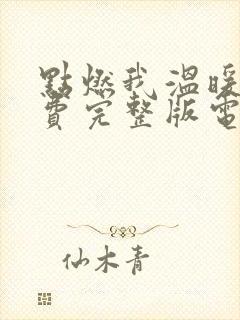 點燃我溫暖
費完整版電
仙木青